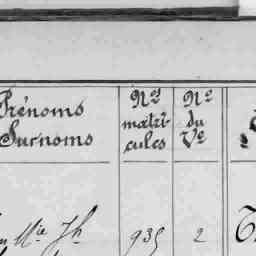 Prénoms
Surnoms
Nos
matri-
cules
No
du
Ve
Mie Jh
935
2